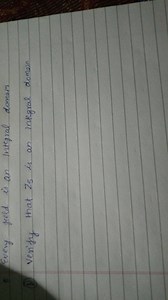 every field is an integral domain
Verify that Z5 is an integral domain